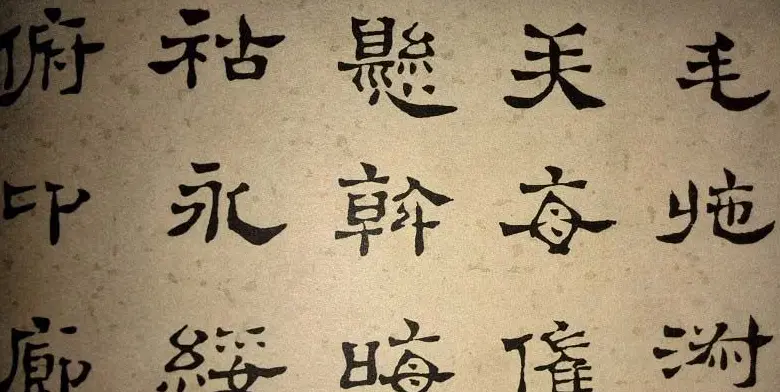 毛施淑
矢每催
懸斡晦
祜永綏
俯仰廊